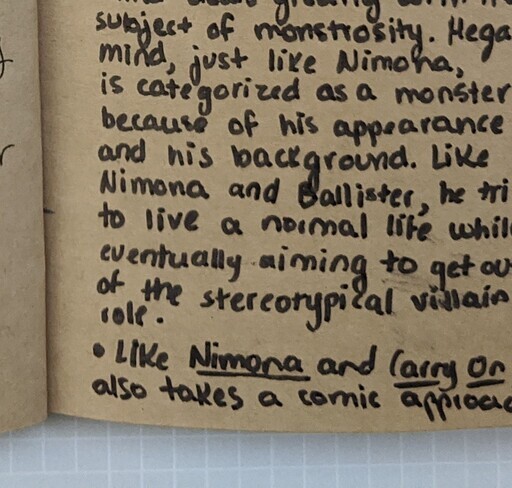 subject of monstrosity. Mega
mind, just like Nimona,
is categorized as a monster
because of his appearance
and his background. Like
Nimona and Ballister, he tri
to live a normal life whil
eventually aiming to get ou
of the stereotypical villain
role.
• Like Nimona and Carry On
also takes a comic approac